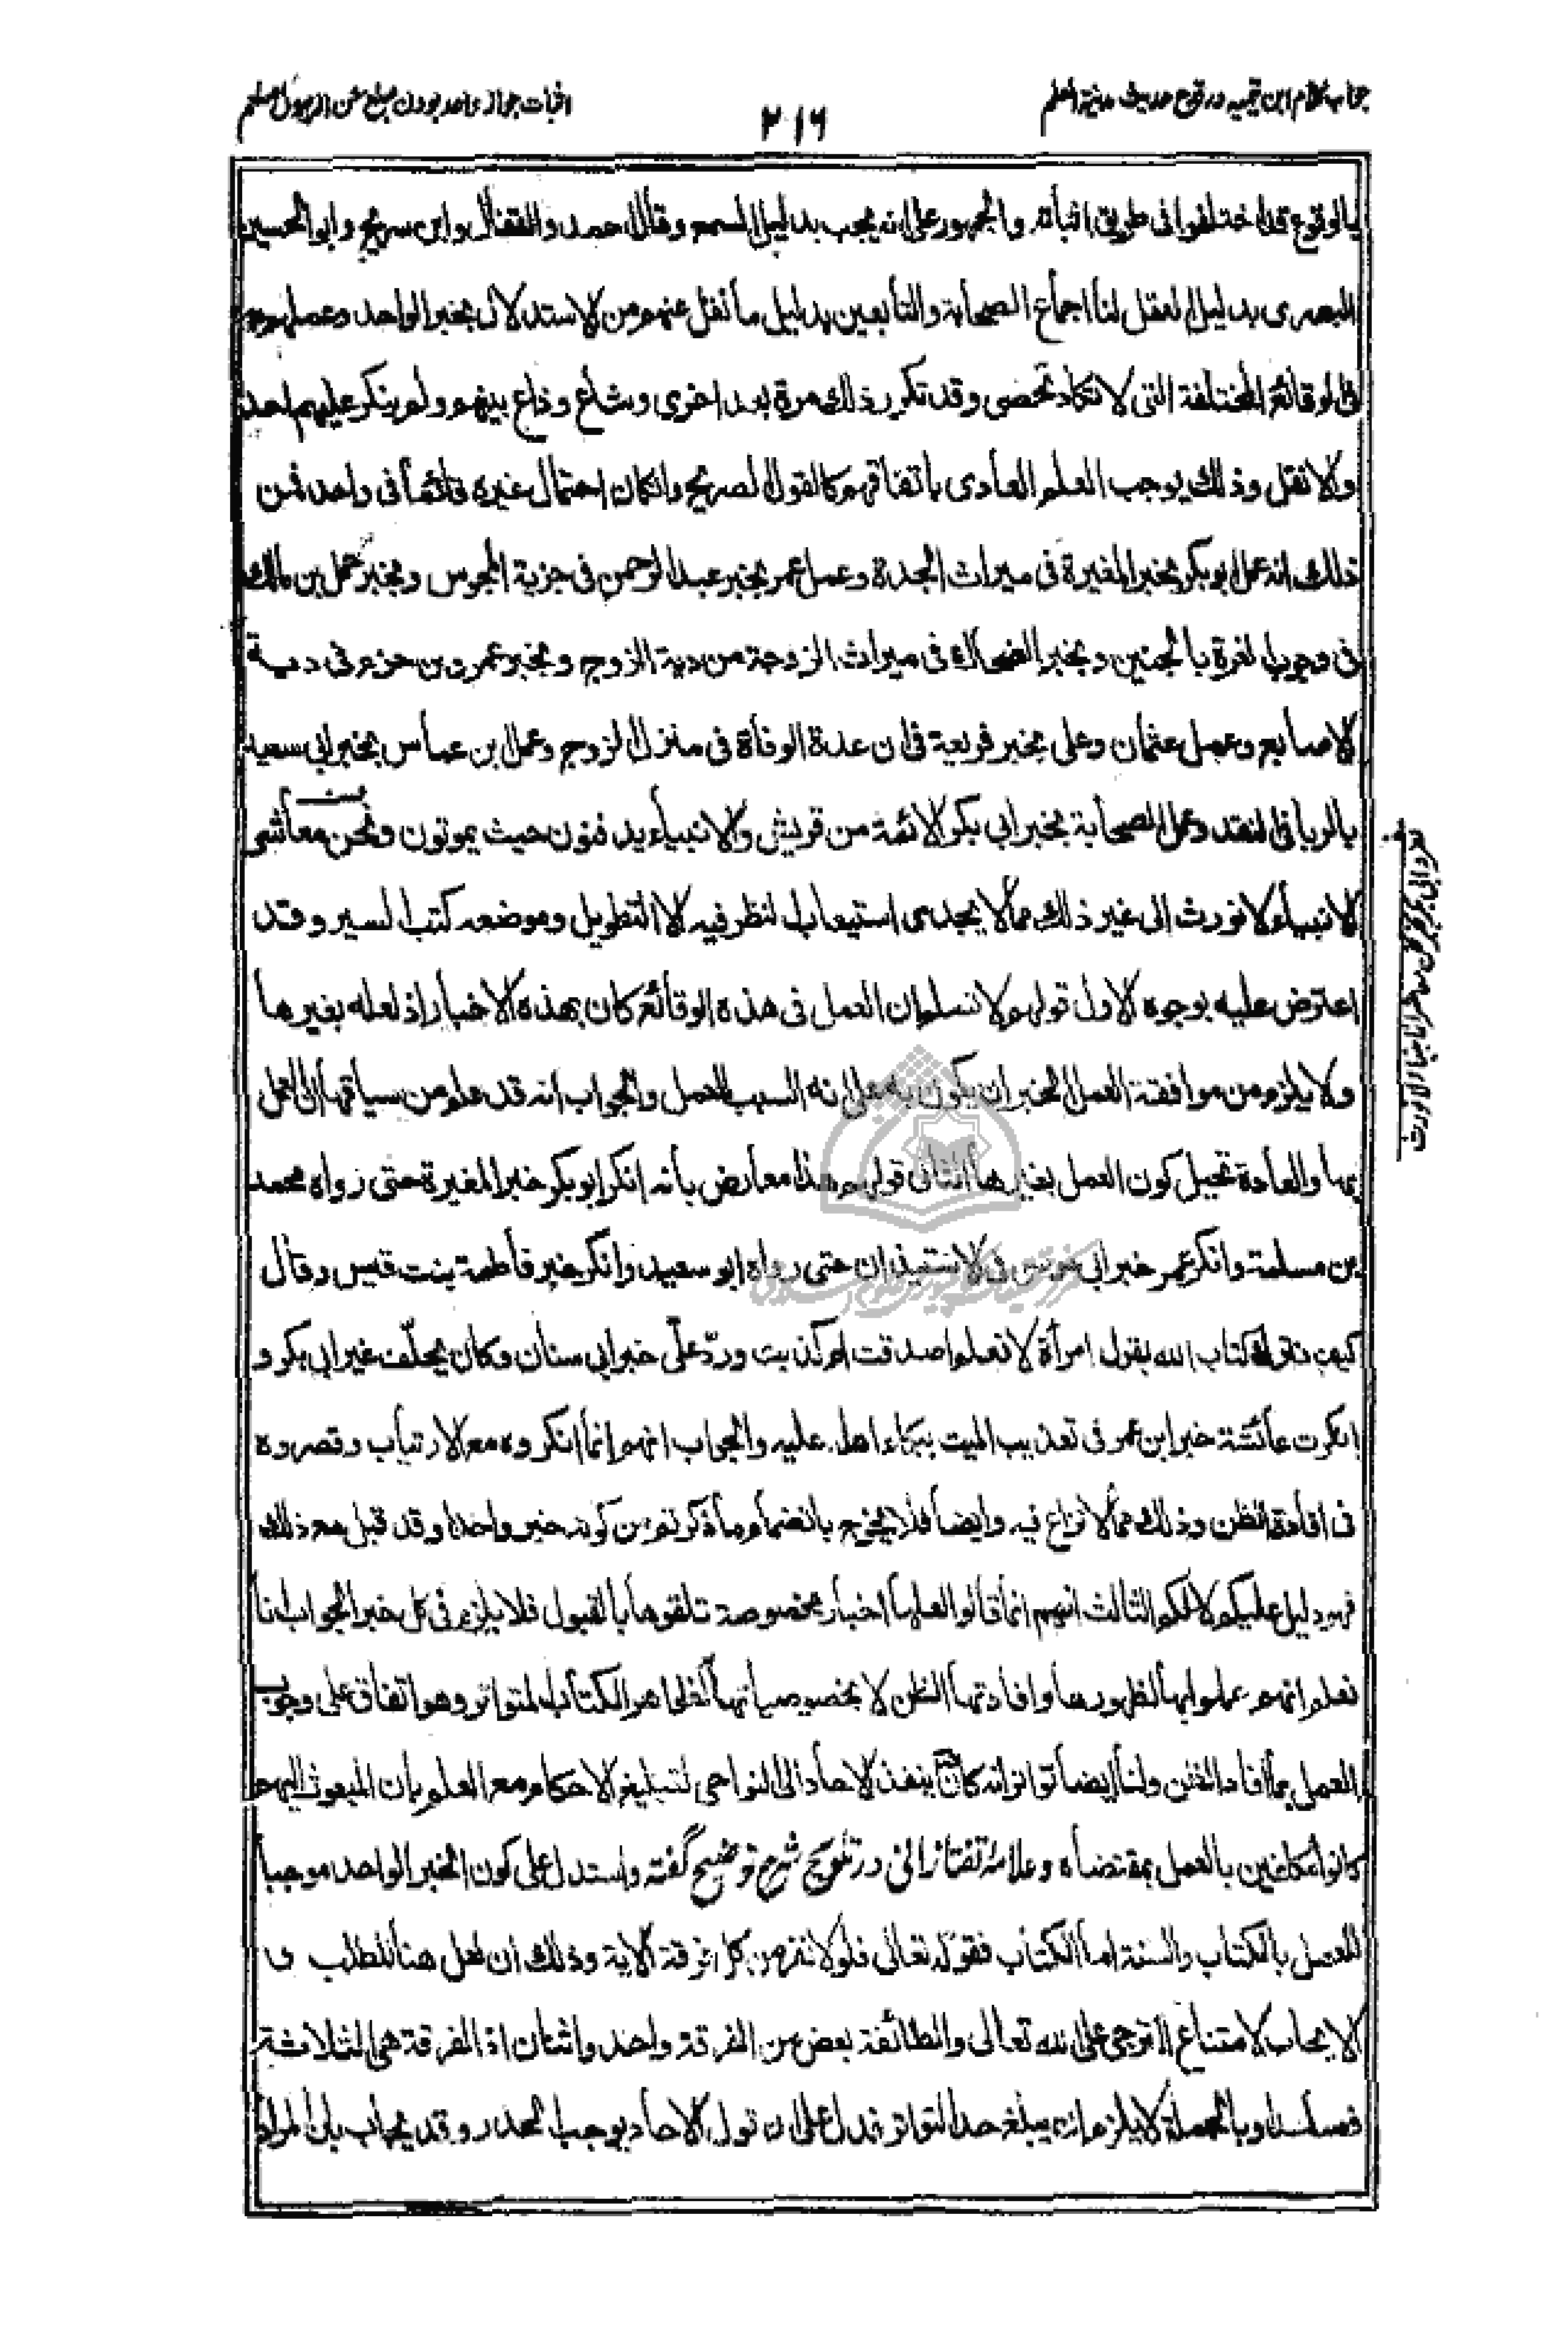 جواب کلام ابن تیمیه در قدح حدیث مدینة العلم
۲۱۶
اثبات جواز واحد بودن مبلغ عن الرسول صلعم
بالوقوع قد اختلفوا فی طریق اثباته والجمهور علی انه یجب بدلیل السمع وقال احمد والقفال وابن سریج وابو الحسین
البصری بدلیل العقل لنا اجماع الصحابة والتابعین بدلیل ما نقل عنهم من الاستدلال بخبر الواحد وعملهم به
فی الوقائع المختلفة التی لا تکاد تحصی وقد تکرر ذلک مرة بعد اخری وشاع وذاع بینهم ولم ینکر علیهم احد
والا نقل وذلک یوجب العلم العادی باتفاقهم کالقول الصریح وان کان احتمال غیره قائما فی واحد فمن
ذلک انه عمل ابو بکر بخبر المغیرة فی میراث الجدة وعمل عمر بخبر عبد الرحمن فی جزیة المجوس وبخبر حمل بن مالک
فی وجوب الغرة بالجنین وبخبر الضحاک فی میراث الزوجة من دیة الزوج وبخبر عمرو بن حزم فی دیة
الاصابع وعمل عثمان وعلی بخبر فریعة فی ان عدة الوفاة فی منزل الزوج وعمل ابن عباس بخبر ابی سعید
بالربا فی النقد وعمل الصحابة بخبر ابی بکر الائمة من قریش والانبیاء یدفنون حیث یموتون ونحن معاشر
الانبیاء لا نورث الی غیر ذلک مما لا یجدی استیعاب النظر فیه الا التطویل وموضعه کتب السیر وقد
اعترض علیه بوجوه الاول قولهم لا نسلم ان العمل فی هذه الوقائع کان بهذه الاخبار اذ لعله بغیرها
ولا یلزم من موافقة العمل الخبر ان یکون به علی انه السبب للعمل والجواب انه قد علم من سیاقها ان العمل
بها والعادة تحیل کون العمل بغیرها الثانی قولهم هذا معارض بانه انکر ابو بکر خبر المغیرة حتی رواه محمد
بن مسلمة وانکر عمر خبر ابی موسی فی الاستیذان حتی رواه ابو سعید وانکر خبر فاطمة بنت قیس وقال
کیف نترک کتاب الله بقول امرأة لا نعلم اصدقت ام کذبت وردّ علیّ خبر ابی سنان وکان یحلّف غیر ابی بکر و
انکرت عائشة خبر ابن عمر فی تعذیب المیت ببکاء اهله علیه والجواب انهم انما انکروه مع الارتیاب وقصوره
فی افادة الظن وذلک مما لا نزاع فیه وایضا فلا یخرج بانضمام ما ذکرتم من کونه خبر واحد وقد قبل مع ذلک
فهو دلیل علیکم لا لکم الثالث انهم انما قالوا لعلها اخبار مخصوصة تلقوها بالقبول فلا یلزم فی کل خبر الجواب انا
نعلم انهم عملوا بها لظهورها وافادتها الظن لا بخصوصیاتها کظاهر الکتاب المتواتر وهو اتفاق علی وجوب
العمل بما افاد الظن ولنا ایضا تواتر انه کان ینفذ الاحاد الی النواحی لتبلیغ الاحکام مع العلم بان المبعوث الیهم
کانوا مکلفین بالعمل بمقتضاه وعلامه تفتازانی در تلویح شرح توضیح گفته واستدل علی کون الخبر الواحد موجبا
للعمل بالکتاب والسنة اما الکتاب فقوله تعالی فلولا نفر من کل فرقة الایة وذلک ان لعل هنا للطلب ی
الایجاب لامتناع الترجی علی الله تعالی والطائفة بعض من الفرقة واحد واثنان اذ الفرقة هی الثلاثة
فصاعدا وبالجملة لا یلزم ان یبلغ حد التواتر فدل علی ان قول الاحاد یوجب الحذر وقد یجاب بان المراد